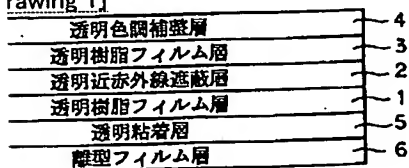 rawing 1]
透明色調補整層 4
透明樹脂フィルム層 3
透明近赤外線遮蔽層 2
透明樹脂フィルム層 1
透明粘着層 5
離型フィルム層 6